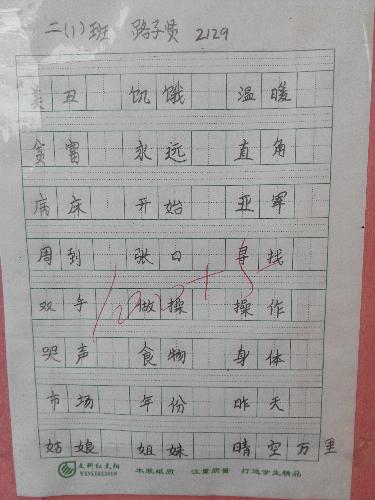 二(1)班 路子贤 2129
美丑 饥饿 温暖
贫富 永远 直角
病床 开始 亚军
周到 张口 寻找
双手 做操 操作
哭声 食物 身体
市场 年份 昨天
姑娘 姐妹 晴空万里
100+5
本装纸质 注重质量 打造学生精品